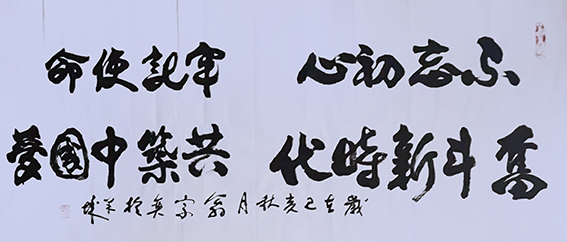 不忘初心 牢記使命
奮斗新時代 共築中國夢
歲在己亥秋月翁宗奐於羊城